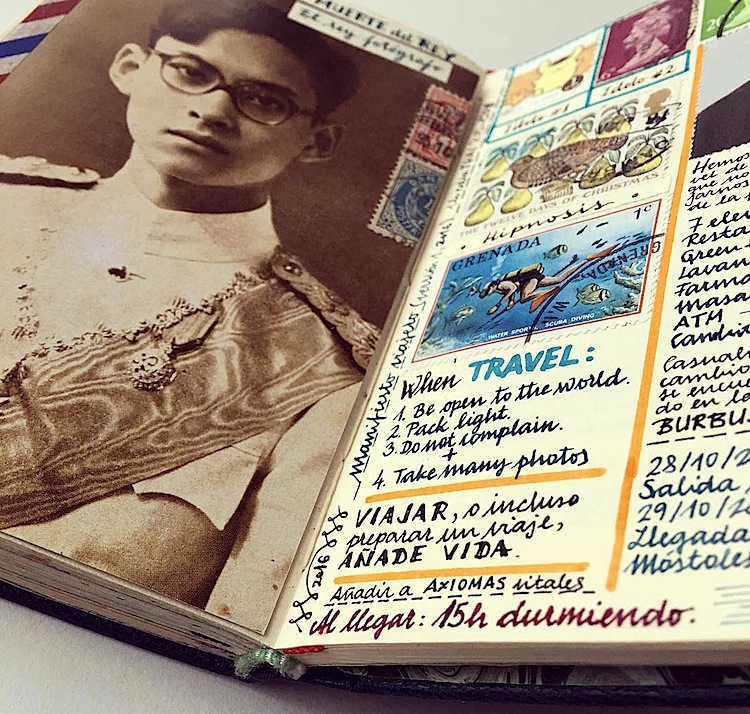 MUERTE del REY
El rey fotógrafo
Ídolo #1
Ídolo #2
THE TWELVE DAYS OF CHRISTMAS
Hipnosis.
GRENADA
1c
GRENADA
WATER SPORTS SCUBA DIVING
Manifiesto viajero (versión 1, 2016)
When TRAVEL:
1. Be open to the world.
2. Pack light.
3. Do not complain.
+
4. Take many photos
VIAJAR, o incluso
preparar un viaje,
AÑADE VIDA.
2016
Añadir a AXIOMAS vitales
Al llegar: 15h durmiendo.
Hemos
que no
de la
7 elev
Resta
Green
Lavan
Farma
Masa
ATM
Candi
Casual
cambio
se encu
do en lo
BURBU
28/10/2
Salida
29/10/20
Llegada
Móstoles